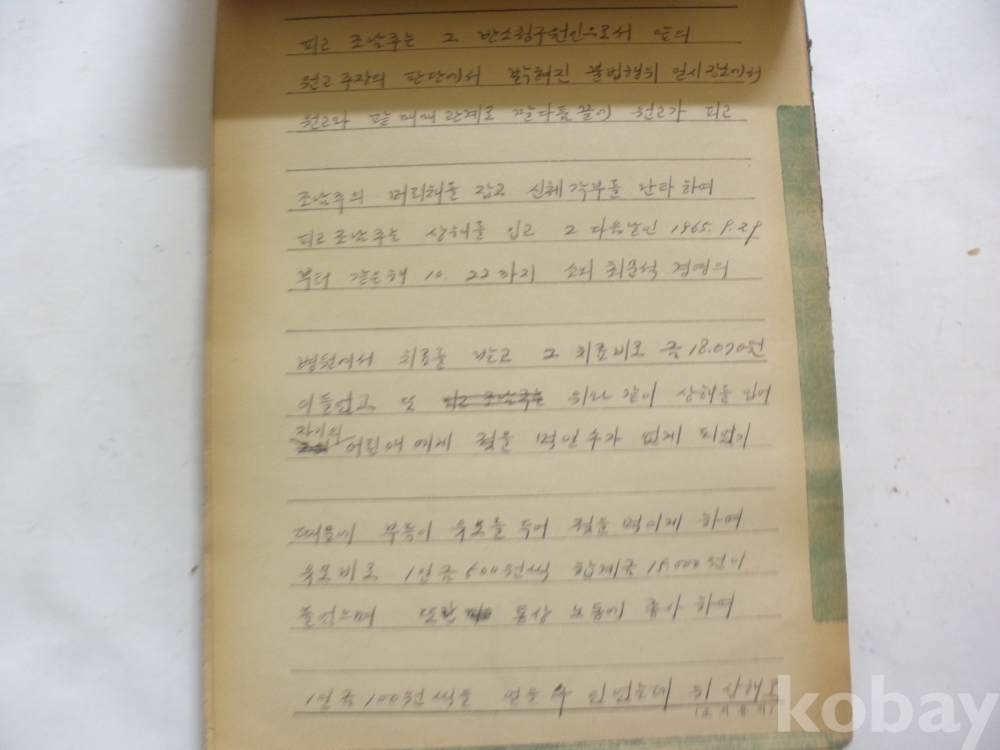 피고 조남주는 그 반소청구원인으로서 앞의
원고 주장의 판단에서 밝혀진 불법행위 일시 장소에서
원고와 관계로 말다툼 끝에 원고가 피고
조남주의 머리채를 잡고 신체 각부를 난타 하여
피고 조남주는 상해를 입고 그 다음날인 1965. 9. 29
부터 같은해 10. 22까지 소외 최문석 경영의
병원에서 치료를 받고 그 치료비로 금 18.070원
이 들었고 또 피고 조남주는 위와 같이 상해를 입어
자기의
어린애에게 젖을 먹일 수가 없게 되었기
때문에 부득이 유모를 두어 젖을 먹이게 하여
유모비로 1일금 500원씩 합계금 15.000원이
들었으며 또한 통상 노동에 종사 하여
1일금 100원씩을 얻을 수 있었는데 위 상해로
kobay